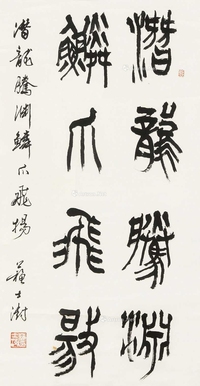 潛龍騰淵
鱗爪飛揚
潜龍騰淵鱗爪飛揚
蘇士澍